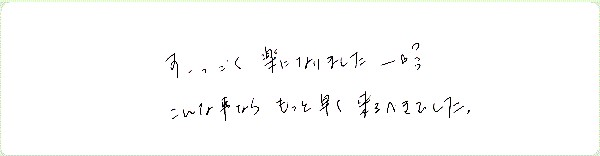 すっっごく楽になりました
こんな事なら もっと早く来るべきでした。